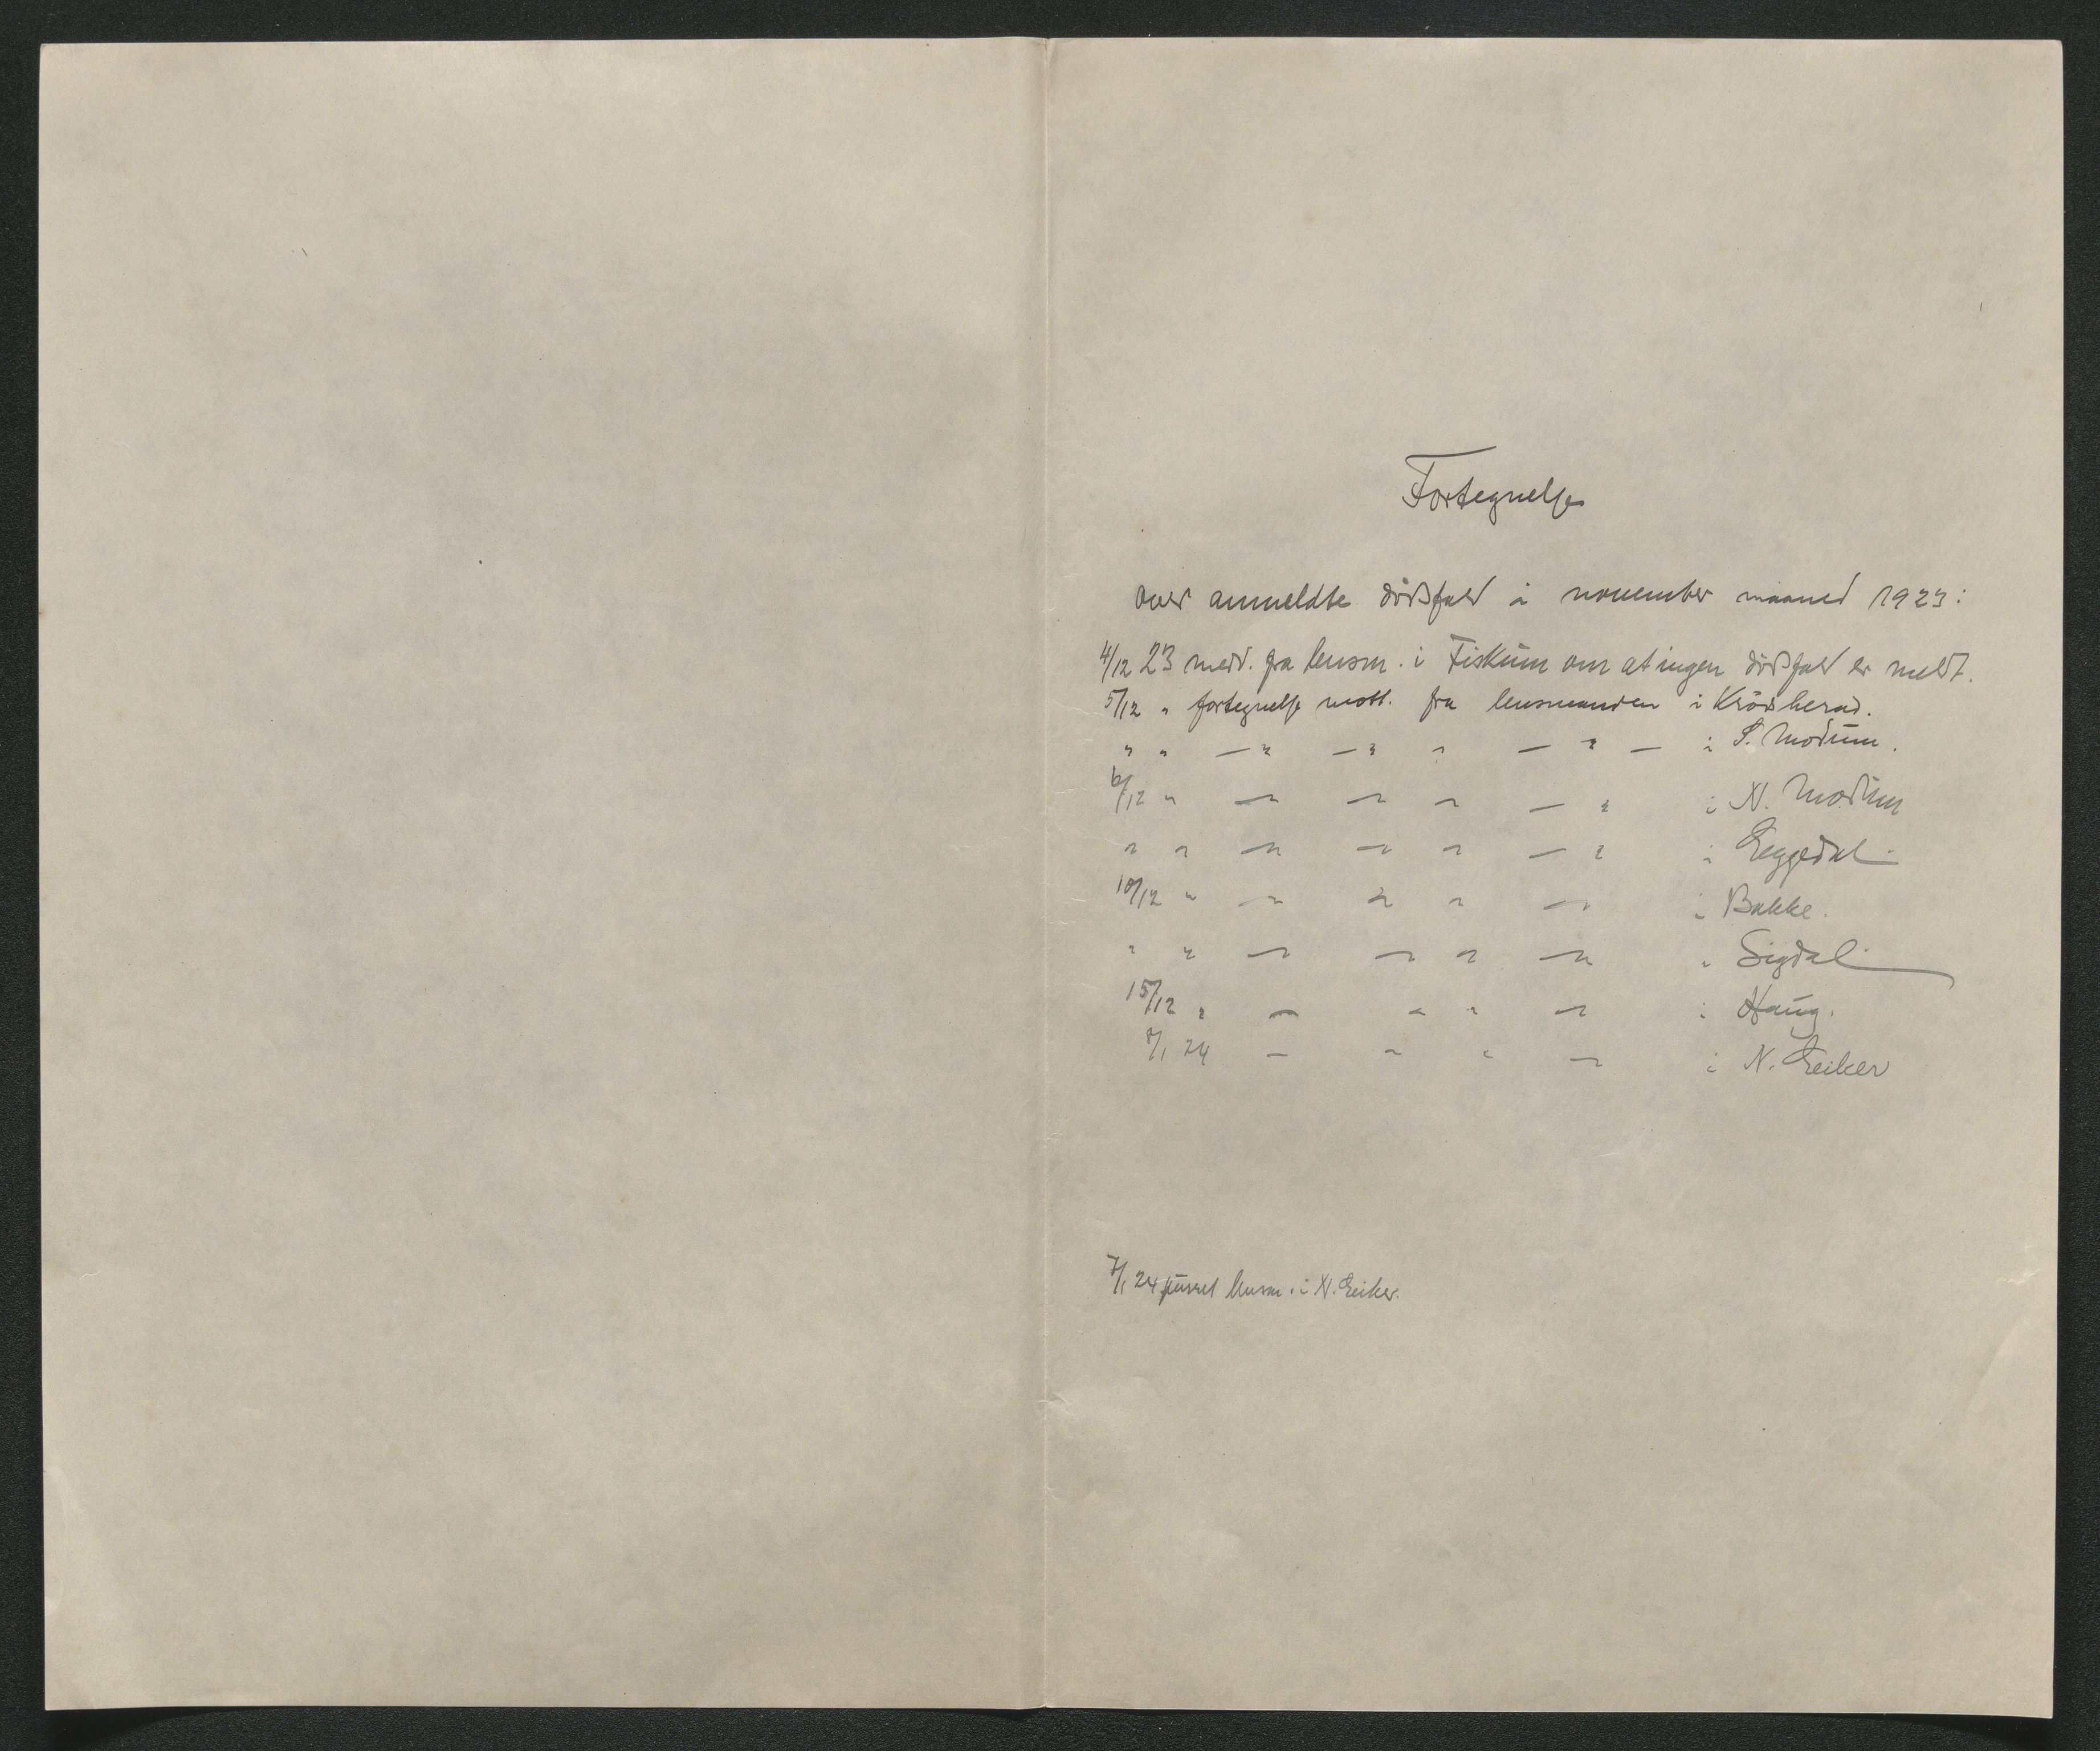 Fortegnelse
over anmeldte dödsfald i november maaned 1923:
4/12 23 medd. fra lensm. i Fiskum om at ingen dödsfald er meldt.
5/12 " fortegnelse mott. fra lensmanden i Krödsherad.
" " — " — " " — " — i S. Modum.
6/12 " — " — " " — " i N. Modum
" " — " — " " — " i Eggedal.
10/12 " — " — " " — " i Bakke.
" " — " — " " — " i Sigdal.
15/12 " — " — " " — " i Haug.
/1 24 — — " — " i N. Eiker
7/1 24 purret lensm. i N. Eiker.